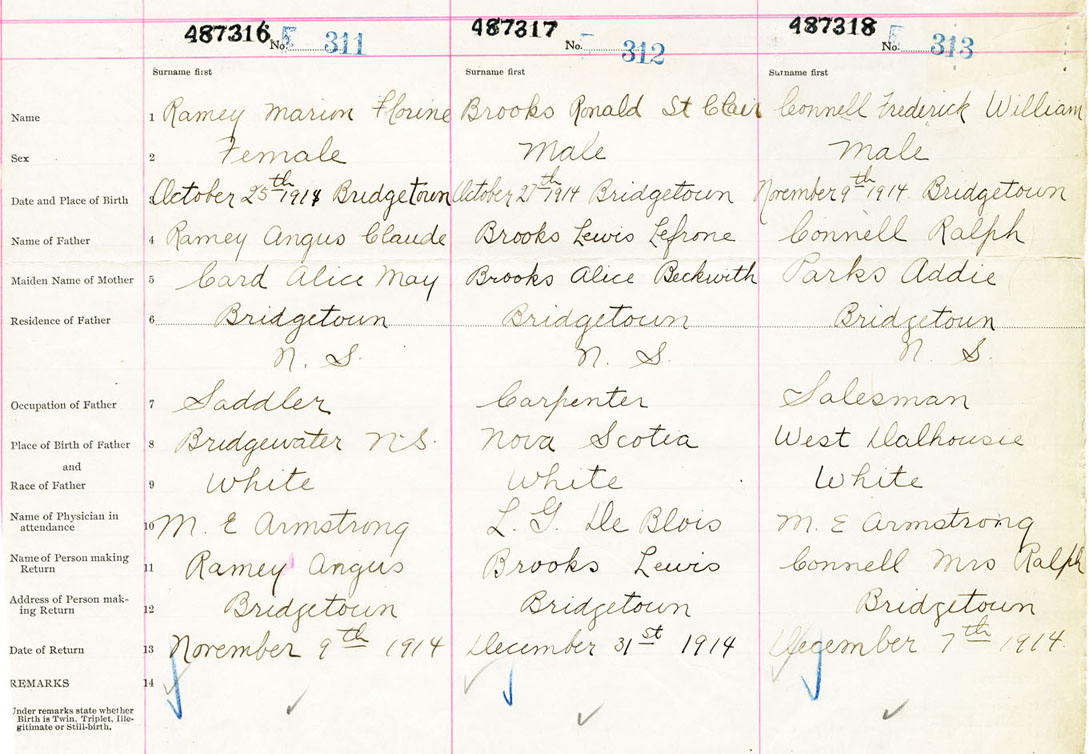 487316 No. 311 487317 No. 312 487318 No. 313
Surname first Surname first Surname first
Name 1 Ramey Marion Florine Brooks Ronald St Clair Connell Frederick William
Sex 2 Female Male Male
Date and Place of Birth 3 October 25th 1914 Bridgetown October 27th 1914 Bridgetown November 9th 1914 Bridgetown
Name of Father 4 Ramey Angus Claude Brooks Lewis Lefrone Connell Ralph
Maiden Name of Mother 5 Card Alice May Brooks Alice Beckwith Parks Addie
Residence of Father 6 Bridgetown Bridgetown Bridgetown
N. S. N. S. N. S.
Occupation of Father 7 Saddler Carpenter Salesman
Place of Birth of Father 8 Bridgewater N.S. Nova Scotia West Dalhousie
and
Race of Father 9 White White White
Name of Physician in
attendance 10 M. E Armstrong L. G. De Blois M. E Armstrong
Name of Person making
Return 11 Ramey Angus Brooks Lewis Connell Mrs Ralph
Address of Person mak-
ing Return 12 Bridgetown Bridgetown Bridgetown
Date of Return 13 November 9th 1914 December 31st 1914 December 7th 1914.
REMARKS 14
Under remarks state whether
Birth is Twin, Triplet, Ille-
gitimate or Still-birth.